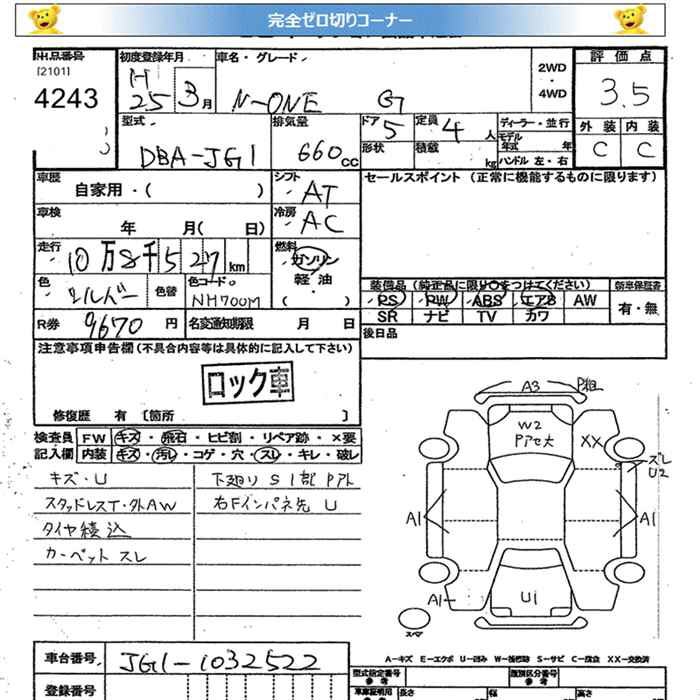 完全ゼロ切りコーナー
出品番号
[2101]
4243
初度登録年月
H 25 3月
車名・グレード
N-ONE G
2WD
・
4WD
評価点
3.5
外装 内装
C C
型式
DBA-JG1
排気量
660cc
ドア 5
形状
定員 4人
積載 kg
ディーラー・並行
モデル年式 年
ハンドル 左・右
車歴
自家用・( )
シフト
AT
セールスポイント(正常に機能するものに限ります)
車検
年 月( 日)
冷房
AC
走行
10万8千527km
燃料
ガソリン
軽油
( )
色
シルバー
色替
色コード
NH700M
装備品(純正品に限り○をつけてください)
新車保証書
PS PW ABS エアB AW
SR ナビ TV カワ
有・無
R券 9670円
名変通知期限 月 日
後日品
注意事項申告欄(不具合内容等は具体的に記入して下さい)
ロック車
修復歴 有〔箇所 〕
検査員記入欄
FW キズ・飛石・ヒビ割・リペア跡・×要
内装 キズ・汚レ・コゲ・穴・スレ・キレ・破レ
キズ・U
スタッドレスT・外AW
タイヤ積込
カーペットスレ
下廻り S 1部Pアト
右Fインパネ先 U
A3 P粗
W2
Pアセ大
XX
ズレ
U2
A1
A1
A1
U1
スペア
A-キズ E-エクボ U-凹み W-補修跡 S-サビ C-腐食 XX-交換済
車台番号
JG1-1032522
登録番号
型式指定番号
参考
類別区分番号
参考
車庫証明用
長さ
幅
高さ